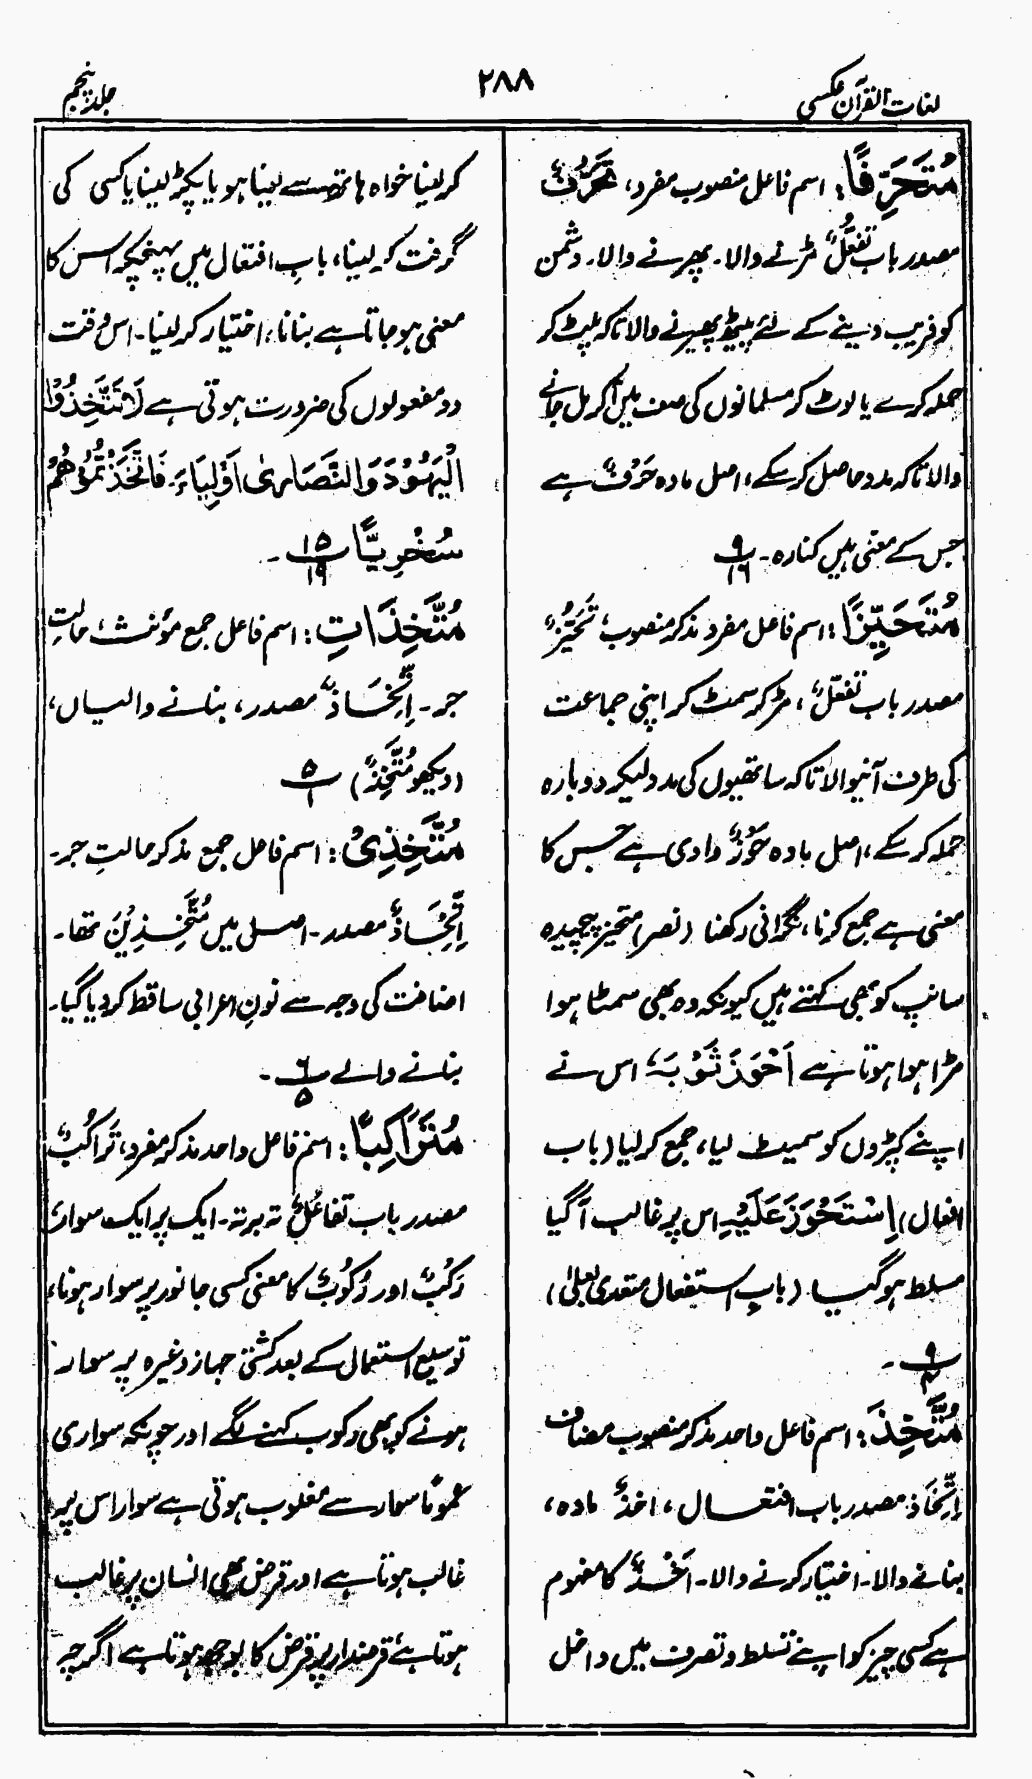 لغات القرآن عکسی
۲۸۸
جلد پنجم
مُتَحَرِّفًا: اسم فاعل منصوب مفرد، تَحَرُّفٌ
مصدر باب تفعُّلٌ مڑنے والا۔ پھرنے والا۔ دشمن
کو فریب دینے کے لئے پیٹھ پھیرنے والا تاکہ پلٹ کر
حملہ کرے یا لوٹ کر مسلمانوں کی صف میں آکر مل جانے
والا تاکہ مدد حاصل کر سکے، اصل مادہ حَرْفٌ ہے
جس کے معنی ہیں کنارہ۔ ۹/۱۶
مُتَحَيِّزًا: اسم فاعل مفرد مذکر منصوب تَحَيُّزٌ
مصدر باب تفعّلٌ، مڑ کر سمٹ کر اپنی جماعت
کی طرف آنیوالا تاکہ ساتھیوں کی مدد لیکر دوبارہ
حملہ کر سکے، اصل مادہ حَوْزٌ وادی ہے جس کا
معنی ہے جمع کرنا، نگرانی رکھنا (نصر) متحیز پیچیدہ
سانپ کو بھی کہتے ہیں کیونکہ وہ بھی سمٹا ہوا
مڑا ہوا ہوتا ہے اَحْوَزَ ثَوْبَہٗ اس نے
اپنے کپڑوں کو سمیٹ لیا، جمع کر لیا (باب
افعال) اِسْتَحْوَذَ عَلَيْهِ اس پر غالب آگیا
مسلط ہوگیا (باب استفعال متعدی بعلیٰ)
۹
مُتَّخِذَ: اسم فاعل واحد مذکر منصوب مضاف
اِتِّخَاذ مصدر باب افتعال، اخذٌ مادہ،
بنانے والا۔ اختیار کرنے والا۔ اَخْذٌ کا مفہوم
ہے کسی چیز کو اپنے تسلط و تصرف میں داخل
کر لینا خواہ ہاتھ سے لینا ہو یا پکڑ لینا یا کسی کی
گرفت کر لینا، باب افتعال میں پہنچکر اس کا
معنی ہو جاتا ہے بنانا، اختیار کر لینا۔ اس وقت
دو مفعولوں کی ضرورت ہوتی ہے لَا تَتَّخِذُوْا
الْیَهُوْدَ وَالنَّصَارٰی اَوْلِیَاءَ۔ فَاتَّخَذْتُمُوْهُمْ
سُخْرِیًّا ۱۵/۱۹۔
مُتَّخِذَاتِ: اسم فاعل جمع مؤنث حالتِ
جر۔ اِتِّخَاذٌ مصدر، بنانے والیاں،
(دیکھو مُتَّخِذٌ) ۵/۱
مُتَّخِذِیْ: اسم فاعل جمع مذکر حالتِ جر۔
اِتِّخَاذٌ مصدر۔ اصل میں مُتَّخِذِیْنَ تھا۔
اضافت کی وجہ سے نونِ اعرابی ساقط کر دیا گیا۔
بنانے والے ۶/۵۔
مُتَرَاکِبًا: اسم فاعل واحد مذکر مفرد، تَرَاکُبٌ
مصدر باب تفاعُلٌ تہ برتہ۔ ایک پر ایک سوار،
رَکْبٌ اور رُکُوْبٌ کا معنی کسی جانور پر سوار ہونا،
توسیع استعمال کے بعد کشتی جہاز وغیرہ پر سوار
ہونے کو بھی رکوب کہنے لگے اور چونکہ سواری
عمومًا سوار سے مغلوب ہوتی ہے سوار اس پر
غالب ہوتا ہے اور قرض بھی انسان پر غالب
ہوتا ہے قرضدار پر قرض کا بوجھ ہوتا ہے اگرچہ